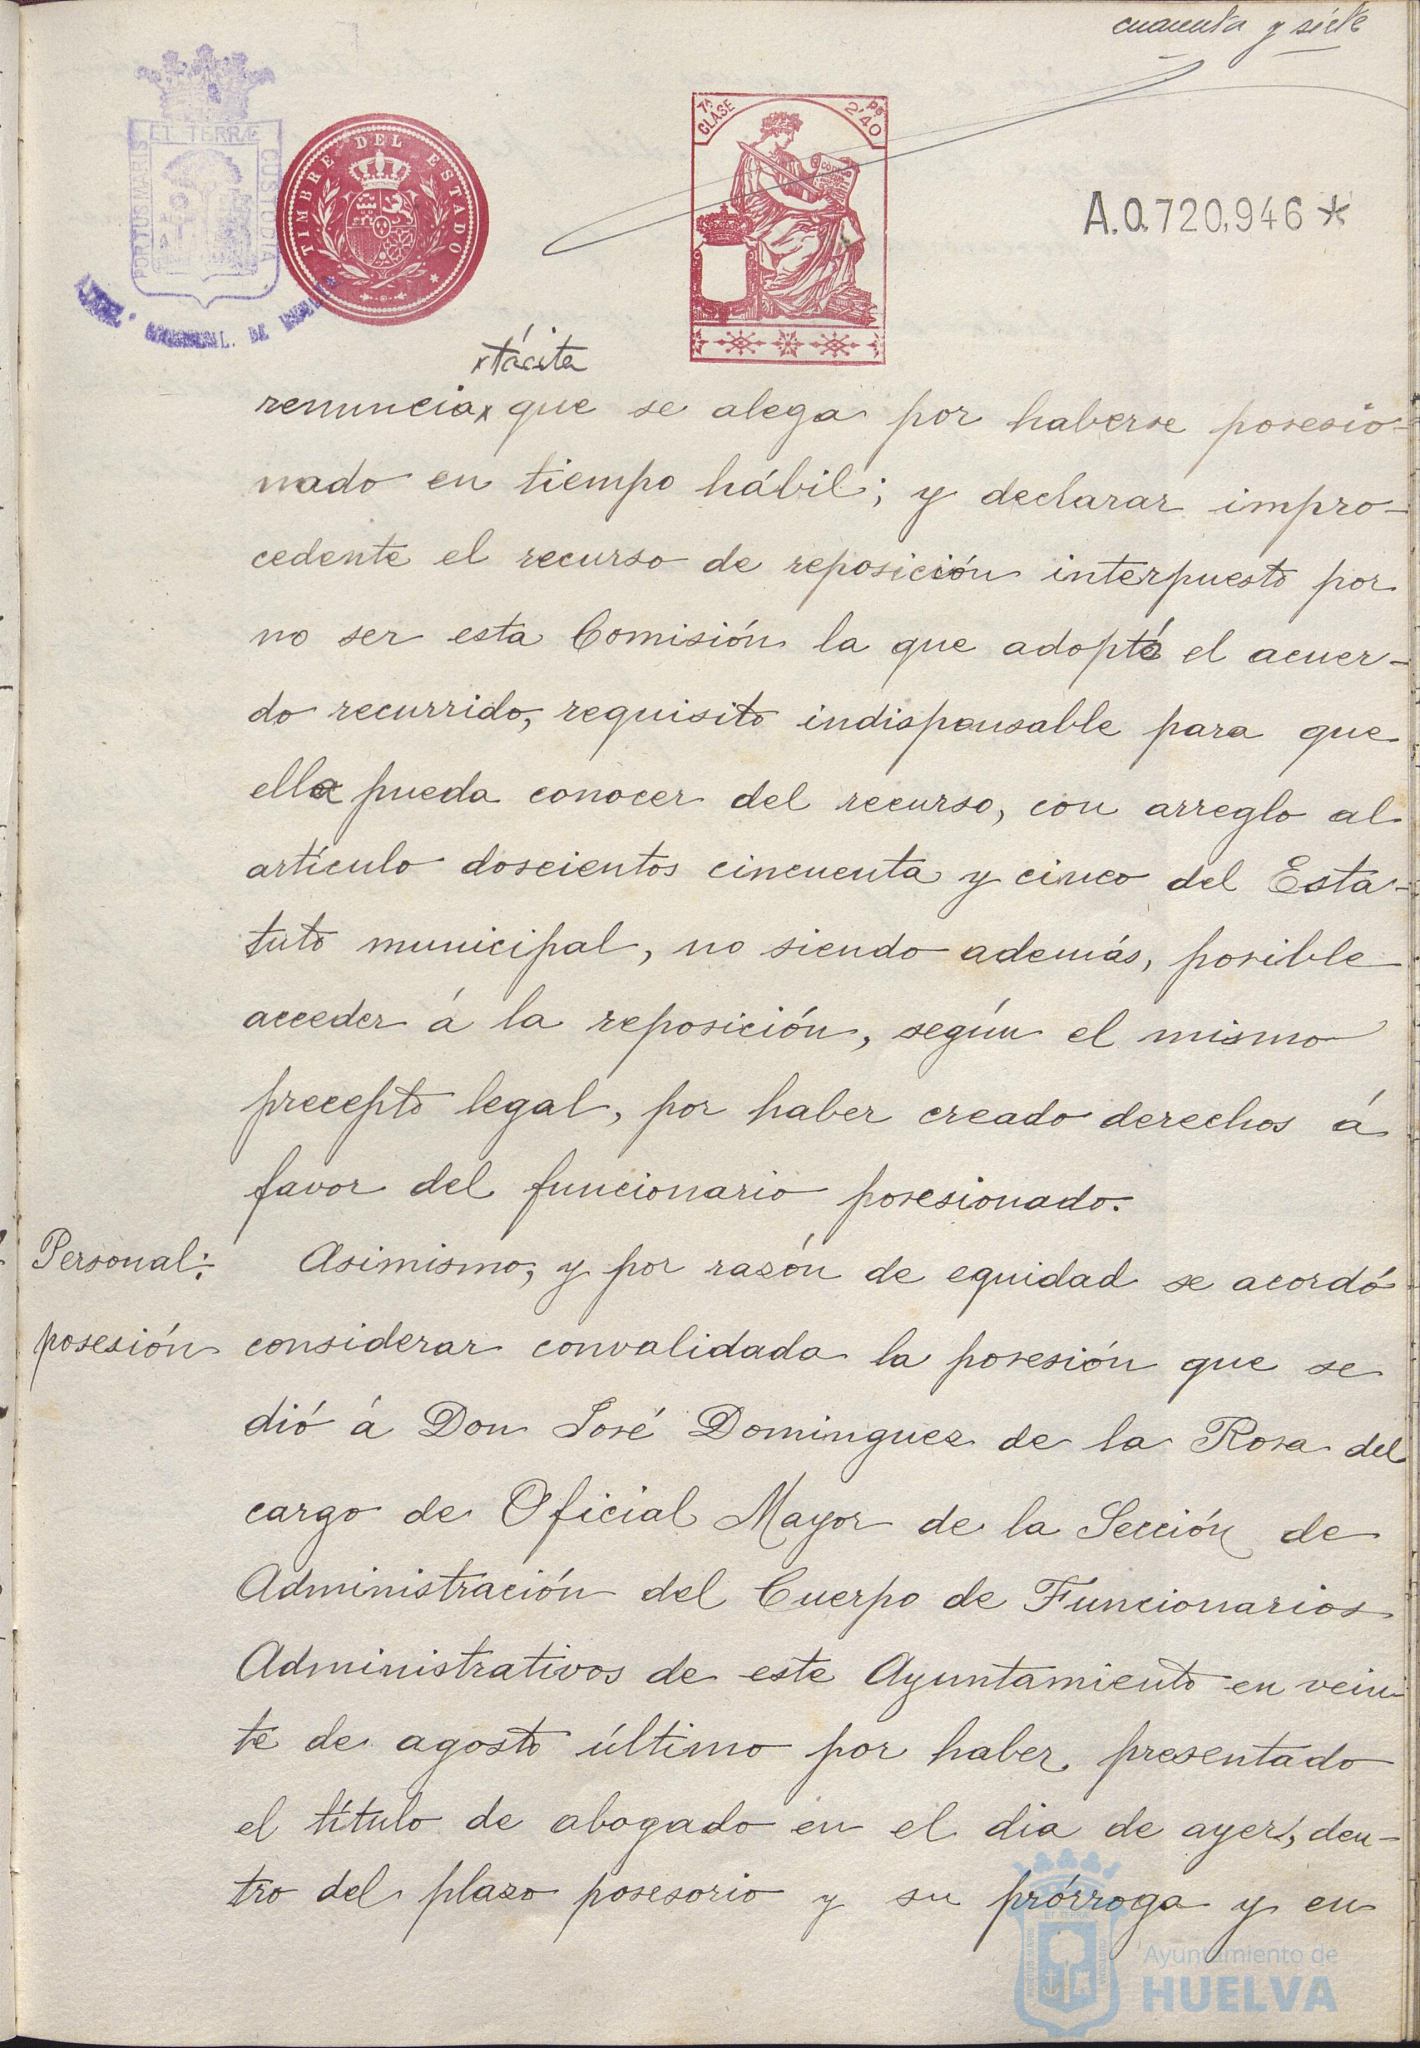 cuarenta y siete
ET TERRÆ
PORTUS MARIS
CUSTODIA
TIMBRE DEL ESTADO
7ª CLASE
2'40 Ps
A.0.720,946 *
DE
×tácita
renuncia× que se alega por haberse posesio-
nado en tiempo hábil; y declarar impro-
cedente el recurso de reposición interpuesto por
no ser esta Comisión la que adoptó el acuer-
do recurrido, requisito indispensable para que
ella pueda conocer del recurso, con arreglo al
artículo doscientos cincuenta y cinco del Esta-
tuto municipal, no siendo además, posible
acceder á la reposición, según el mismo
precepto legal, por haber creado derechos á
favor del funcionario posesionado.
Personal:
posesión
Asimismo, y por razón de equidad se acordó
considerar convalidada la posesión que se
dió á Don José Dominguez de la Rosa del
cargo de Oficial Mayor de la Sección de
Administración del Cuerpo de Funcionarios
Administrativos de este Ayuntamiento en vein-
te de agosto último por haber presentado
el título de abogado en el dia de ayer, den-
tro del plazo posesorio y su prórroga y en
Ayuntamiento de
HUELVA